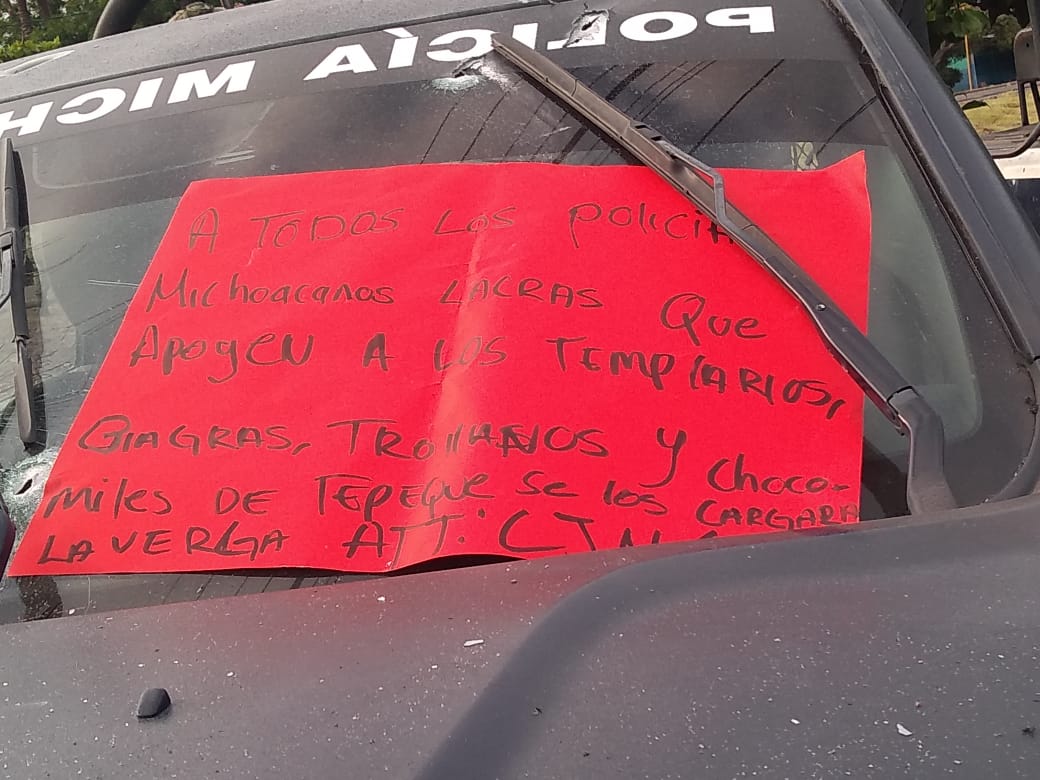 POLICÍA MICH
A TODOS LOS POLICIA
MichoacaNos LACRAS Que
ApoyeN A LOS TEMPlARIOS,
BiAGRAS, TROllANOS y choco-
miles DE TEPEQUe Se los CARGARA
LA VERGA ATT: CJNG